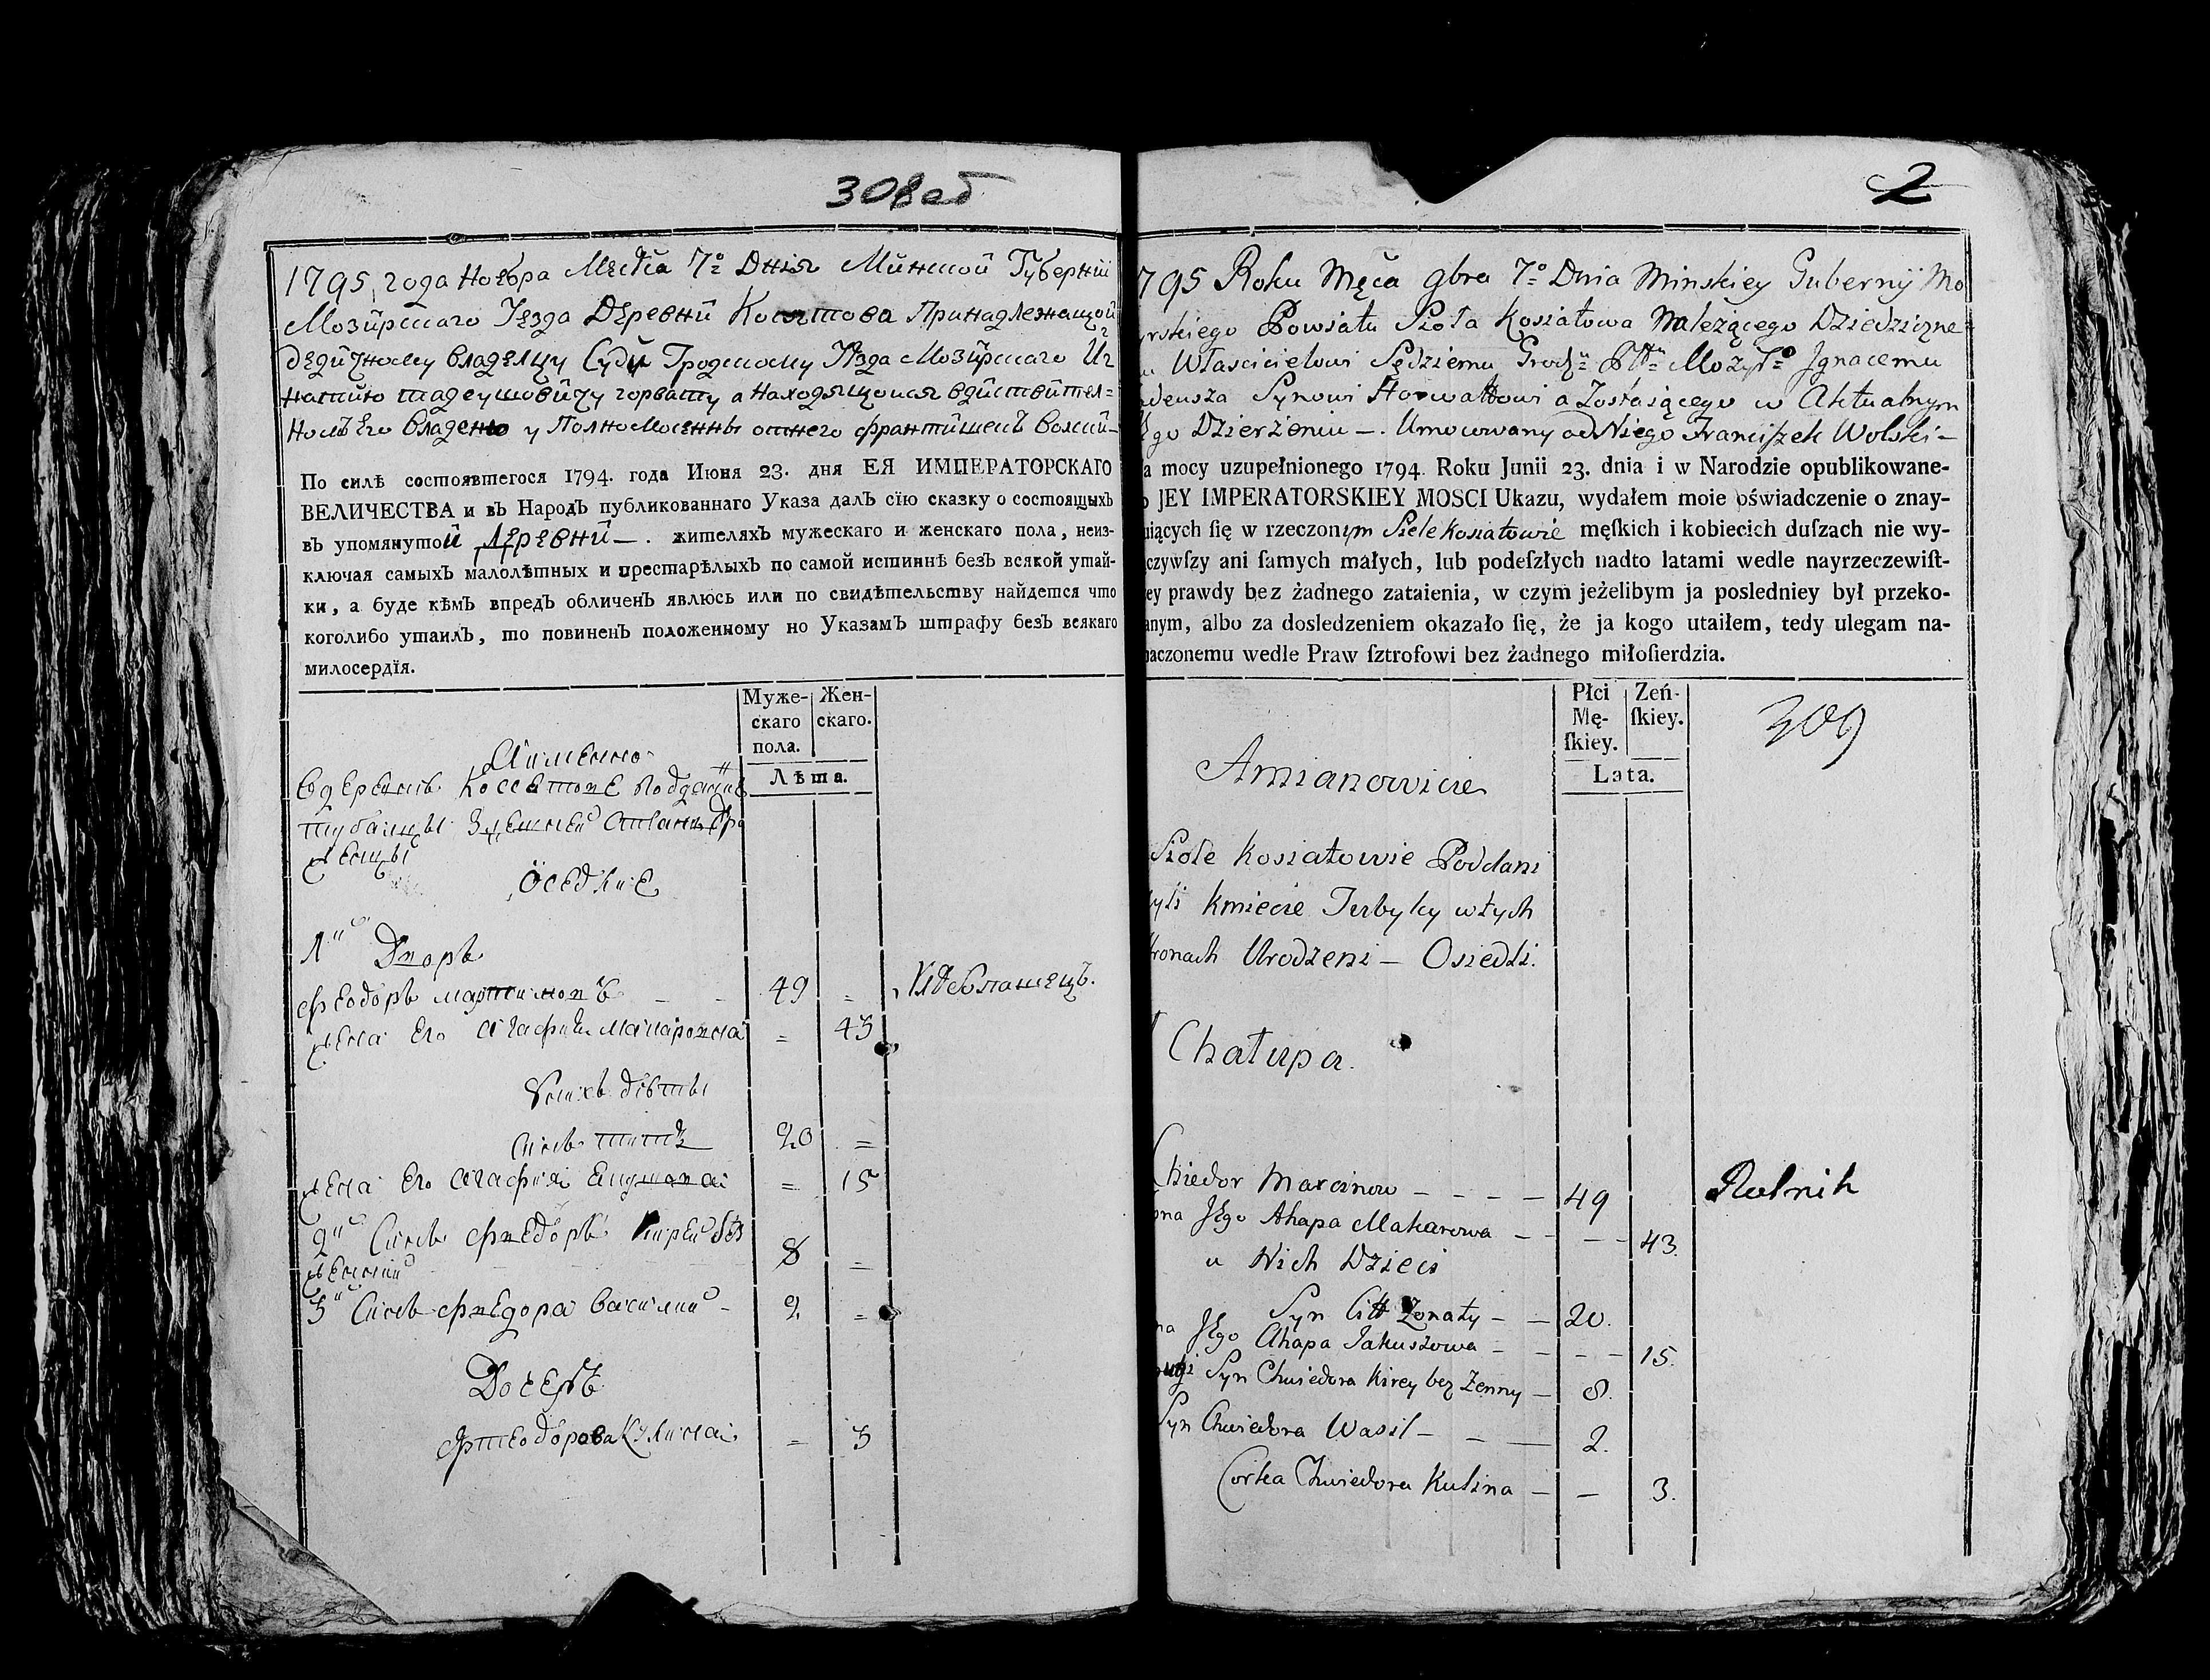 308об
1795 года Ноѣбра Мѣсіца 7º Дніа Минской Губерніи
Мозырскаго Уезда Деревни Косятова Принадлежащой
дедичному владелцу Суди Гродскому Уезда Мозырскаго Иг
натию тадеушовичу горвату а находящомся вдиствител=
номъ его владению у Полномоченны отнего франтишекъ волский
По силѣ состоявшегося 1794. года Июня 23. дня ЕЯ ИМПЕРАТОРСКАГО
ВЕЛИЧЕСТВА и въ Народъ публикованнаго Указа далъ сїю сказку о состоящыхъ
въ упомянутой Деревни —. жителяхъ мужескаго и женскаго пола, неиз-
ключая самыхъ малолѣтных и престарѣлыхъ по самой истиннѣ безъ всякой утай-
ки, а буде кѣмъ впредъ обличенъ явлюсь или по свидѣтельству найдется что
коголибо утаилъ, то повиненъ положенному по Указамъ штрафу безъ всякаго
милосердїя.
Муже-
скаго
пола.
Жен-
скаго.
Лѣта.
Аименно
вдеревнѣ Коссятове Подданіе
оседлие
1й Дворъ
феодоръ мартиновъ - - 49 =
жена его агафия макаровна = 43
Унихъ дѣти
Синъ титъ 20 =
жена его агафия = 15
2й Синъ фведоръ Кирей без
женний 8 =
3й Синъ фведора василий - 2 =
Дочеръ
Фтеодорова Кулина = 3
2
795 Roku Męca 9bra 7º Dnia Minskiey Guberny Mo
yrskiego Powiatu Sioła Kosiatowa Należącego Dziedziczne
u Włascicielowi Sędziemu Grodz: Ptu Mozyr: Jgnacemu
adeusza Synowi Horwattowi a Zostaiącego w Aktualnym
Ego Dzierżeniu —. Umocowany od Niego Franciszek Wolski —
a mocy uzupełnionego 1794 Roku Junii 23. dnia i w Narodzie opublikowane-
o JEY IMPERATORSKIEY MOSCI Ukazu, wydałem moie oświadczenie o znay-
uiących ſię w rzeczonym Siele Kosiatowie męſkich i kobiecich duſzach nie wy-
czywſzy ani ſamych małych, lub podeſzłych nadto latami wedle nayrzeczewiſt-
ey prawdy bez żadnego zataienia, w czym jeżelibym ja posledniey był przeko-
anym, albo za dosledzeniem okazało ſię, że ja kogo utaiłem, tedy ulegam na-
naczonemu wedle Praw ſztrofowi bez żadnego miłoſierdzia.
Płci
Mę-
ſkiey.
Zeń-
ſkiey.
Lata.
309
Amianowicie
Siole Kosiatowie Poddani
yli Kmiecie Terbylcy wtych
tronach Urodzeni — Osiedli.
Chałupa.
Chiedor Marcinow - - - - 49 Rolnik
ona Jego Ahapa Makarowa - - - - 43.
u Nich Dzieci
Syn Citt Zonaty - - 20.
na Jego Ahapa Jakuszowa - - - - 15.
rugi Syn Chwiedora Kirey bez Zenny - 8.
Syn Chwiedora Wasil - - — 2.
Corka Chwiedora Kulina - — 3.